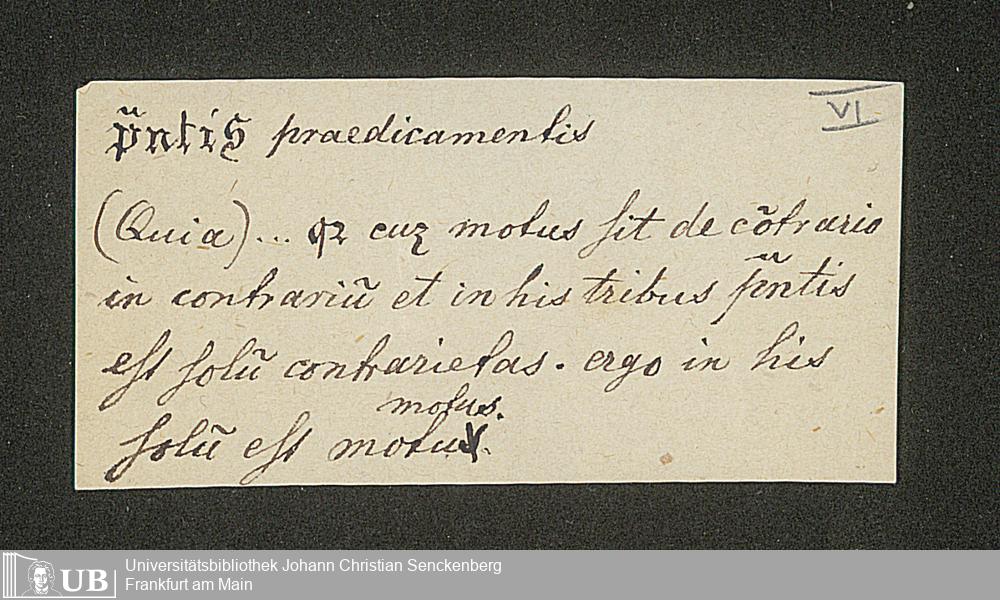 VI
p̃ntis praedicamentis
(Quia)... qꝛ cuꝫ motus ſit de cõtrario
in contrariũ et in his tribus p̃ntis
eſt ſolũ contrarietas. ergo in his
motus.
ſolũ eſt motus.
UB Universitätsbibliothek Johann Christian Senckenberg
Frankfurt am Main